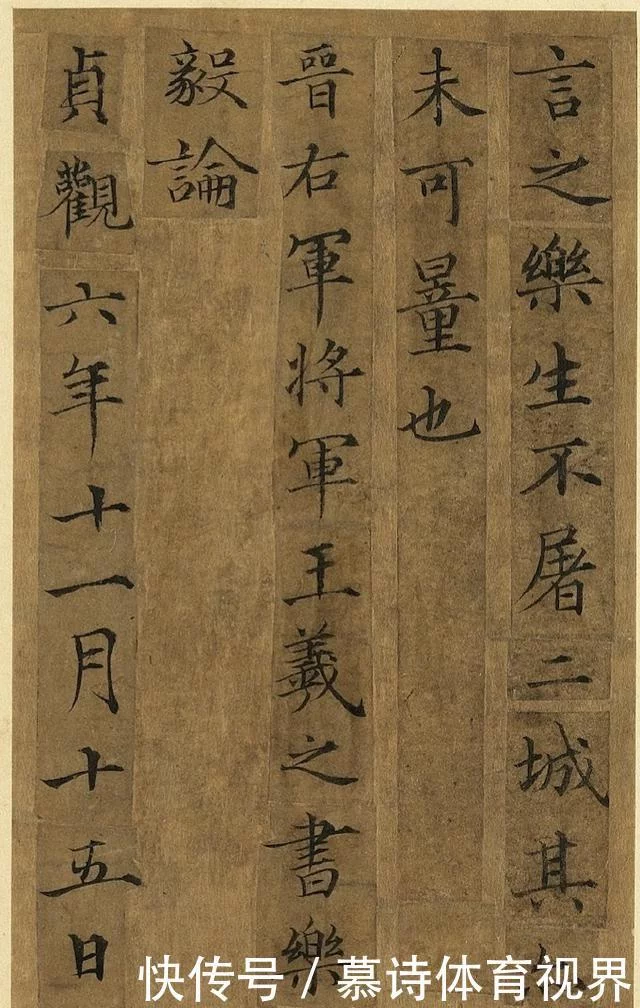 言之樂生不屠二城其
未可量也
晉右軍將軍王羲之書樂
毅論
貞觀六年十一月十五日
快传号 / 慕诗体育视界